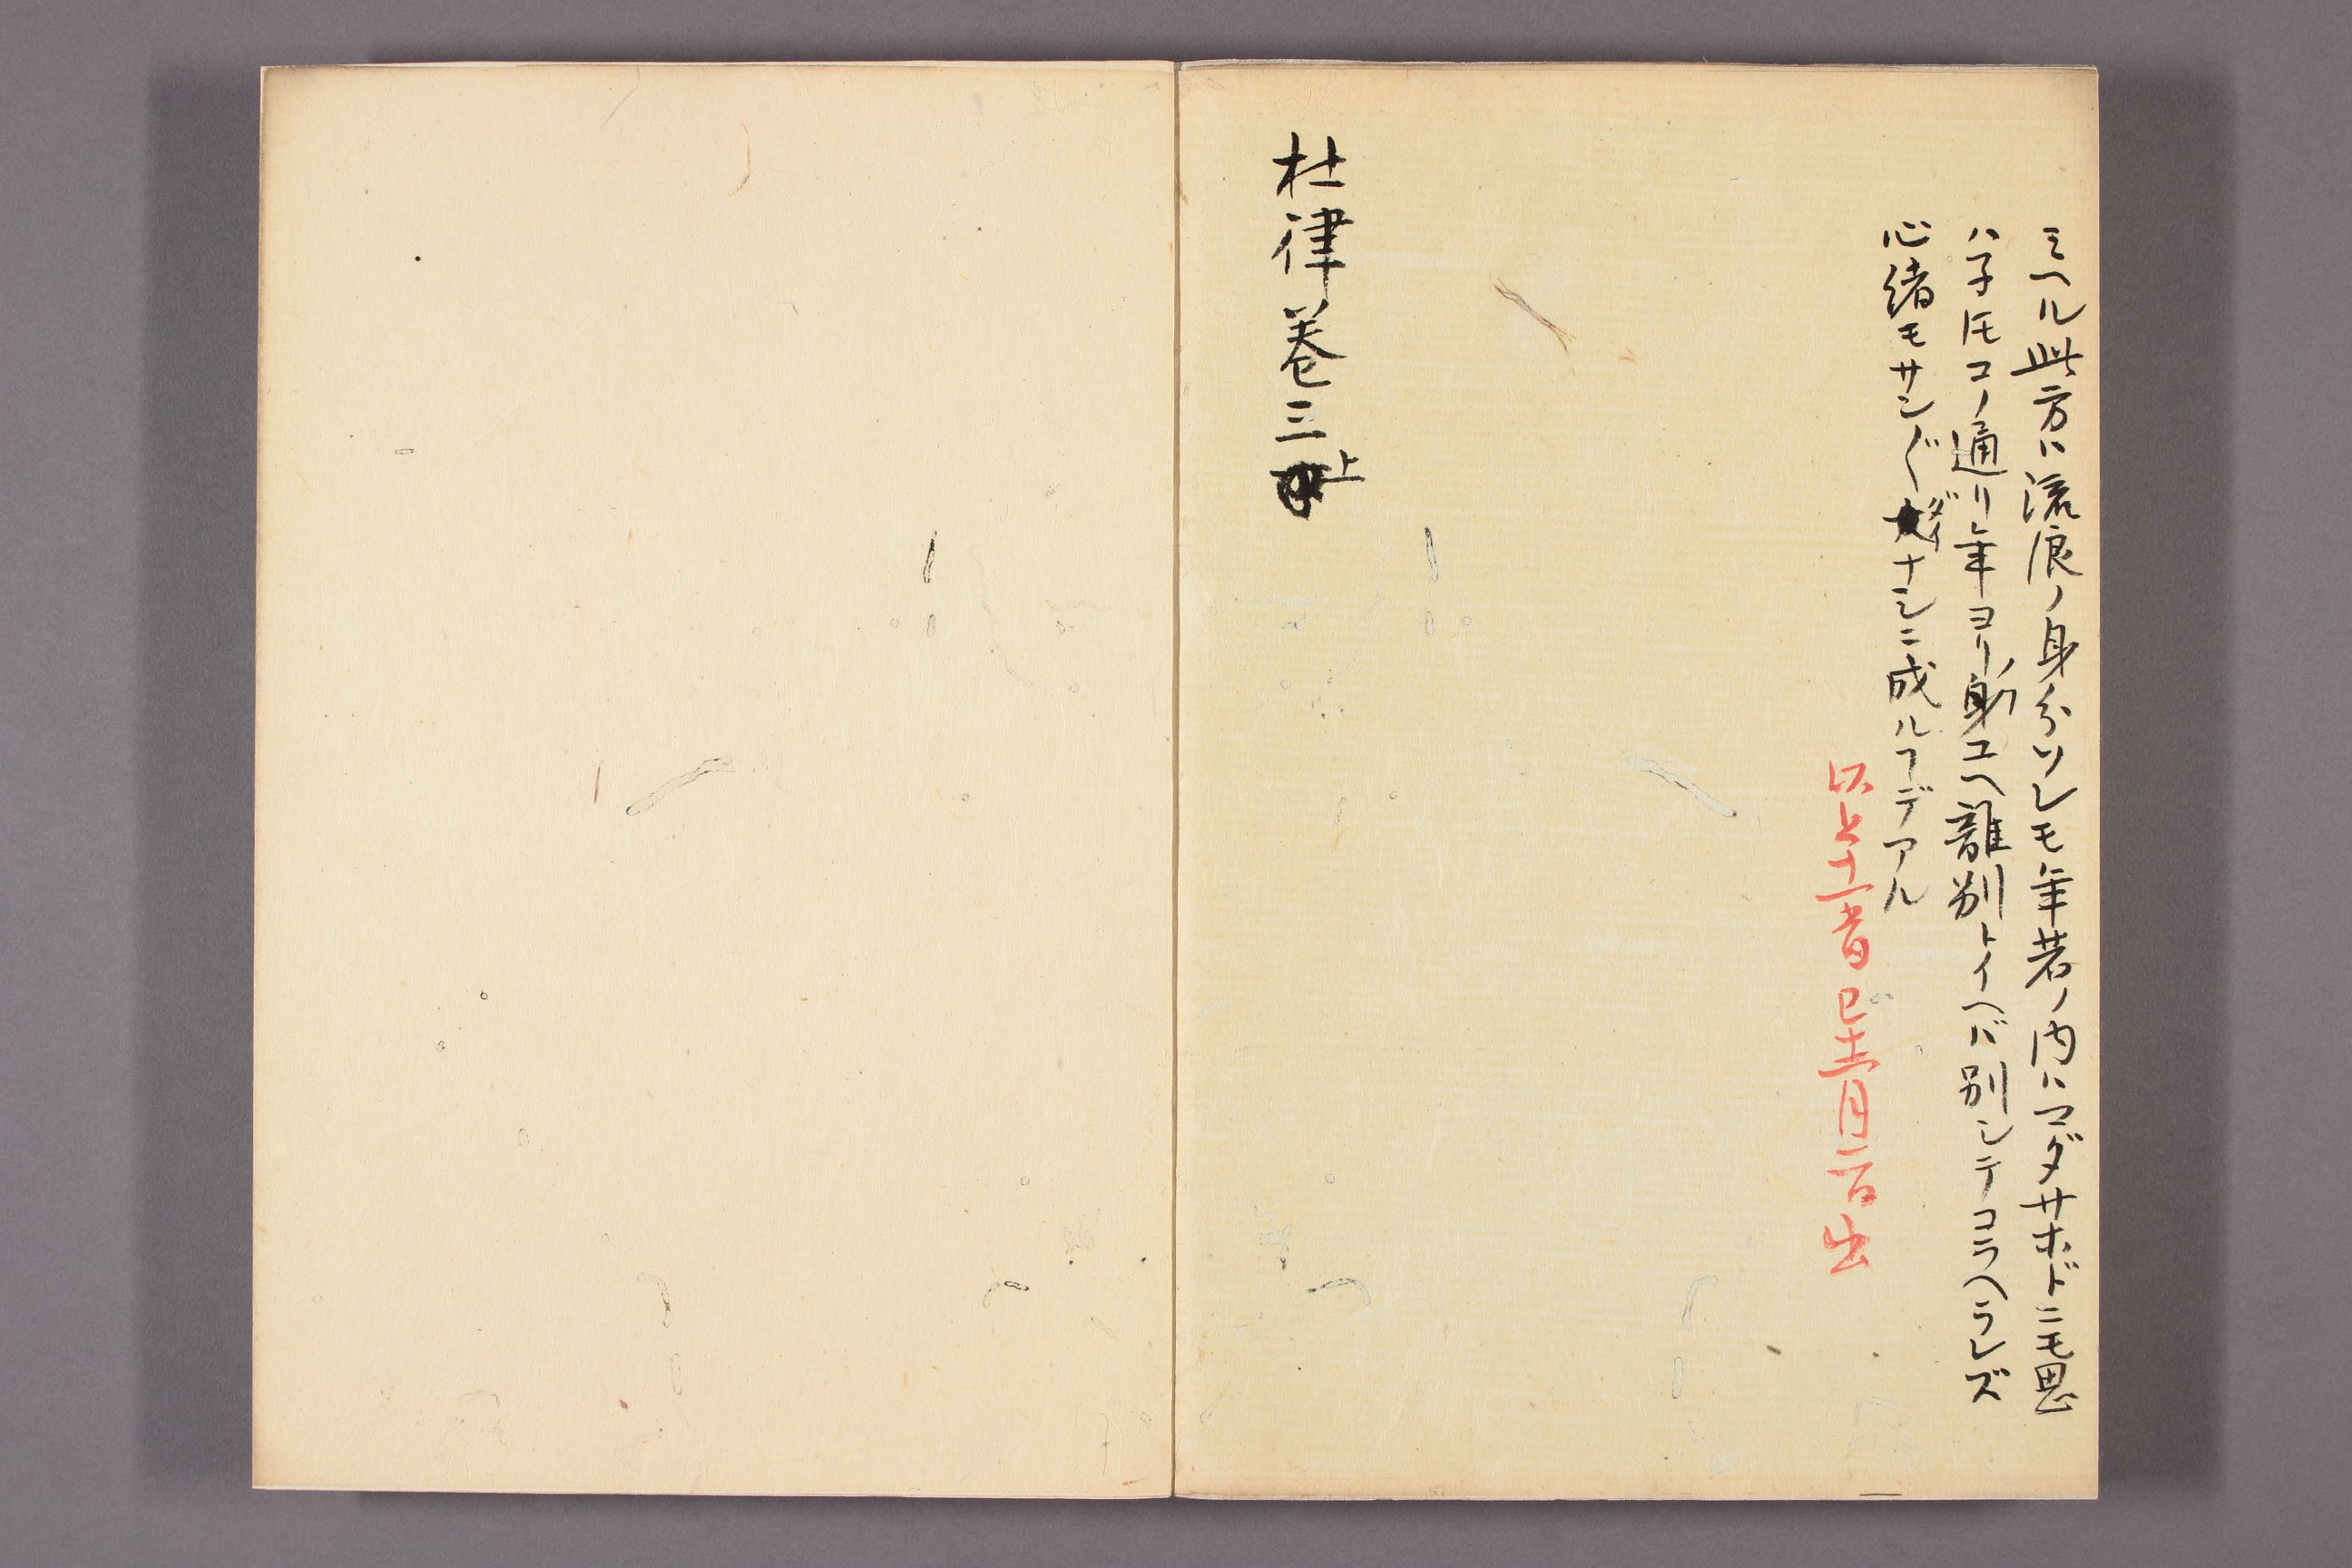 ミヘル此方ハ流浪ノ身分ソレモ年若ノ内ハマダサホドニモ思
ハ子𪜈コノ通リ年ヨリノ身ユヘ離別トイヘバ別シテコラヘラレズ
心緒モサン〴〵ダイナシニ成ルヿデアル
以上十一首 巳十二月二日出
杜律巻三上